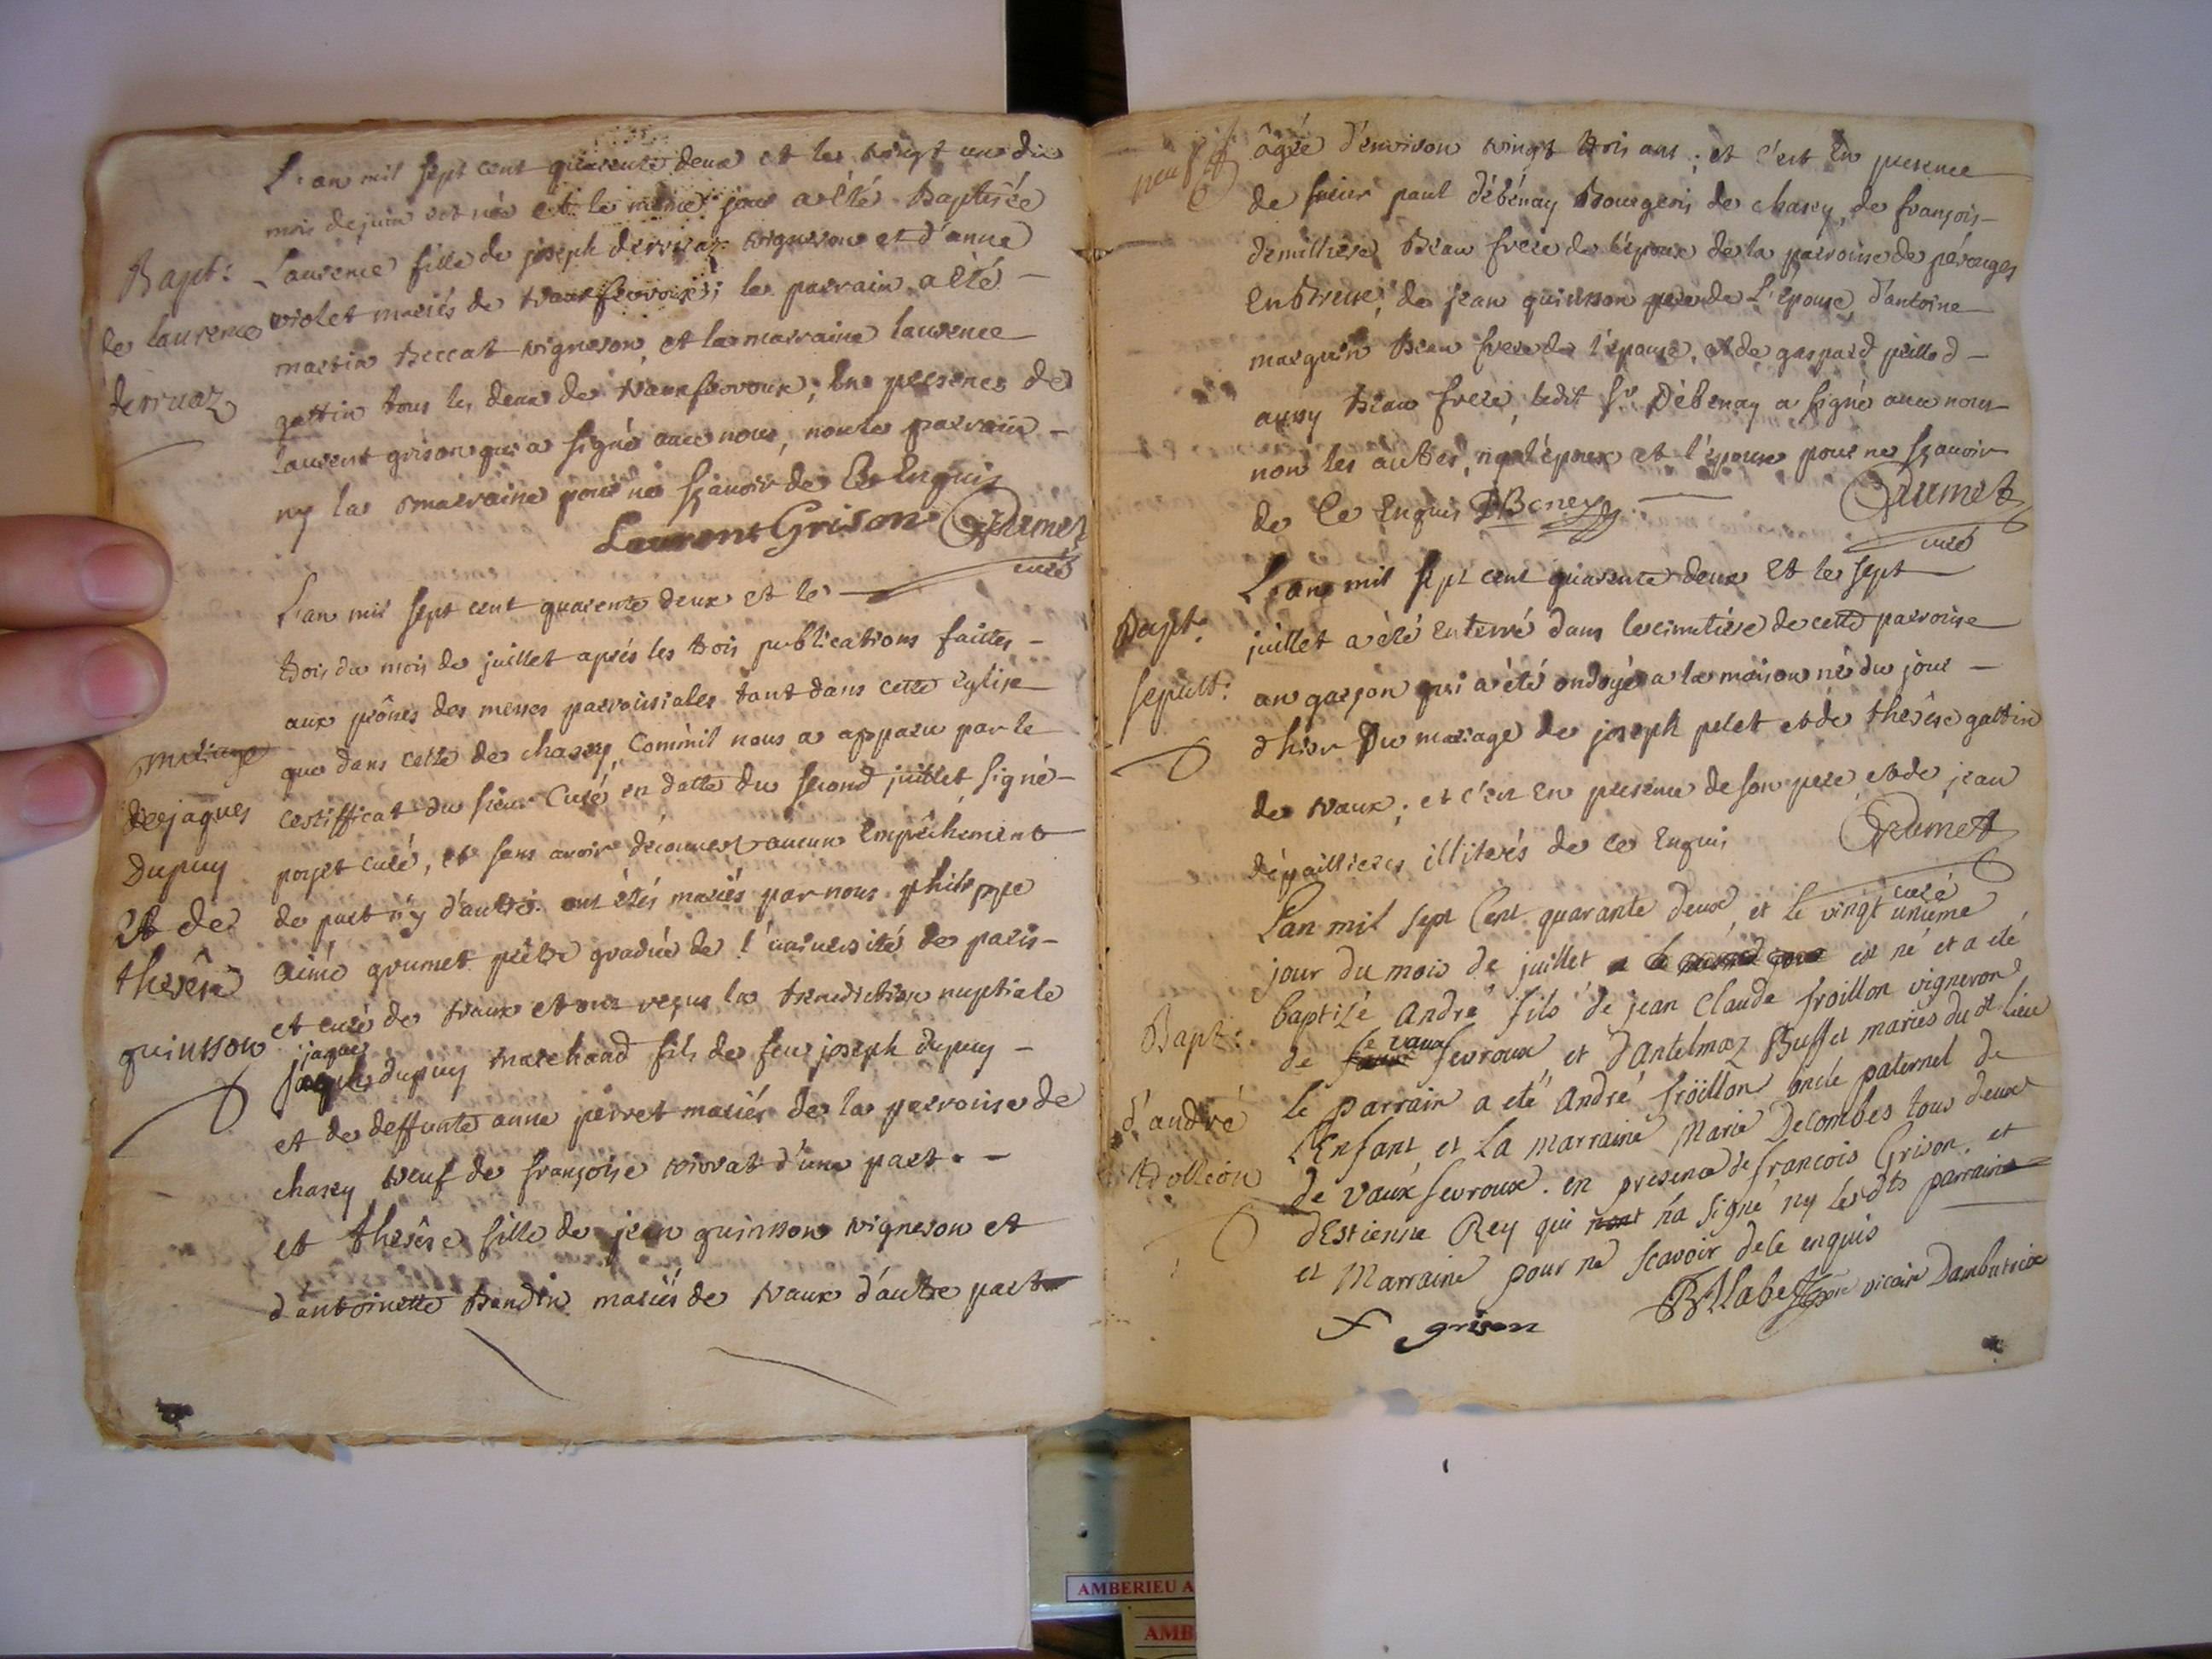 L'an mil sept cent quarente deux et le vingt un du
mois de juin est née et le même jour a été Baptisée
Bapt: Laurence fille de joseph derruaz vigneron et d'anne
violet mariés de vauxfevroux; le parrain a été
de laurence
martin beccat vigneron, et la marraine laurence
derruaz
gattin tous les deux de vauxfevroux; En presence de
laurent grison qui a signé avec nous, non le parrain
ny la marraine pour ne sçavoir de Ce Enquis
Laurent Grison Grumet
curé
L'an mil sept cent quarente deux et le
trois du mois de juillet aprés les trois publications faittes
aux prônes des messes parroissiales tant dans cette Eglise
que dans celle de chasey, Comm'il nous a apparu par le
mariage
certifficat du sieur Curé en datte du second juillet signé
de jaques
poyet curé, et sans avoir decouvert aucun Empêchement
Dupuy
de part n'y d'autre. ont étés mariés par nous philippe
Et de
Aimé grumet prêtre gradué de l'université de paris
therêse
et curé de vaux et ont reçus la benediction nuptiale
quinsson
jaques
dupuy marchand fils de feu joseph dupuy
et de deffunte anne perret mariés de la parroisse de
chasey veuf de françoise vivrat d'une part.
et therêse fille de jean quinsson vigneron et
d'antoinette bandin mariés de vaux d'autre part
âgée d'environ vingt trois ans; et c'est En presence
de sieur paul débénay Bourgeois de chasey, de françois
demilliere Beau frere de l'époux de la parroisse de pérouges
En Bresse, de jean quinsson pere de L'épouse, d'antoine
marguin beau frere de l'épouse, et de gaspard pillod
aussy beau frere, ledit sr Débenay a signé avec nous
non les autres, ny l'époux et l'épouse pour ne sçavoir
de Ce Enquis DBeney Grumet
curé
L'an mil sept cent quarente deux Et le sept
Bapt:
juillet a été enterré dans le cimetière de cette parroisse
sepult:
un garçon qui a été ondoyé a la maison né du jour
d'hier Du mariage de joseph pelet et de therêse gattin
de vaux; et c'est En presence de son pere, et de jean
dépaillieres illiterés de ce Enquis Grumet
curé
L'an mil sept Cent quarante deux et le vingt unieme
jour du mois de juillet est né et a eté
baptizé André fils de jean Claude froillon vigneron
Bapt:
de vaux fevroux et D'Antelmaz Buffet mariés du dt lieu
d'andré
le parrain a eté André froillon oncle paternel de
L'Enfant, et La marraine Marie Decombes tous deux
de vaux fevroux. en presence de francois Grison et
d'Estienne Rey qui n'a signé ny les dts parrain
et Marraine pour ne scavoir de ce enquis
vicaire Dambutrix
F grison
AMBERIEU A
AMB